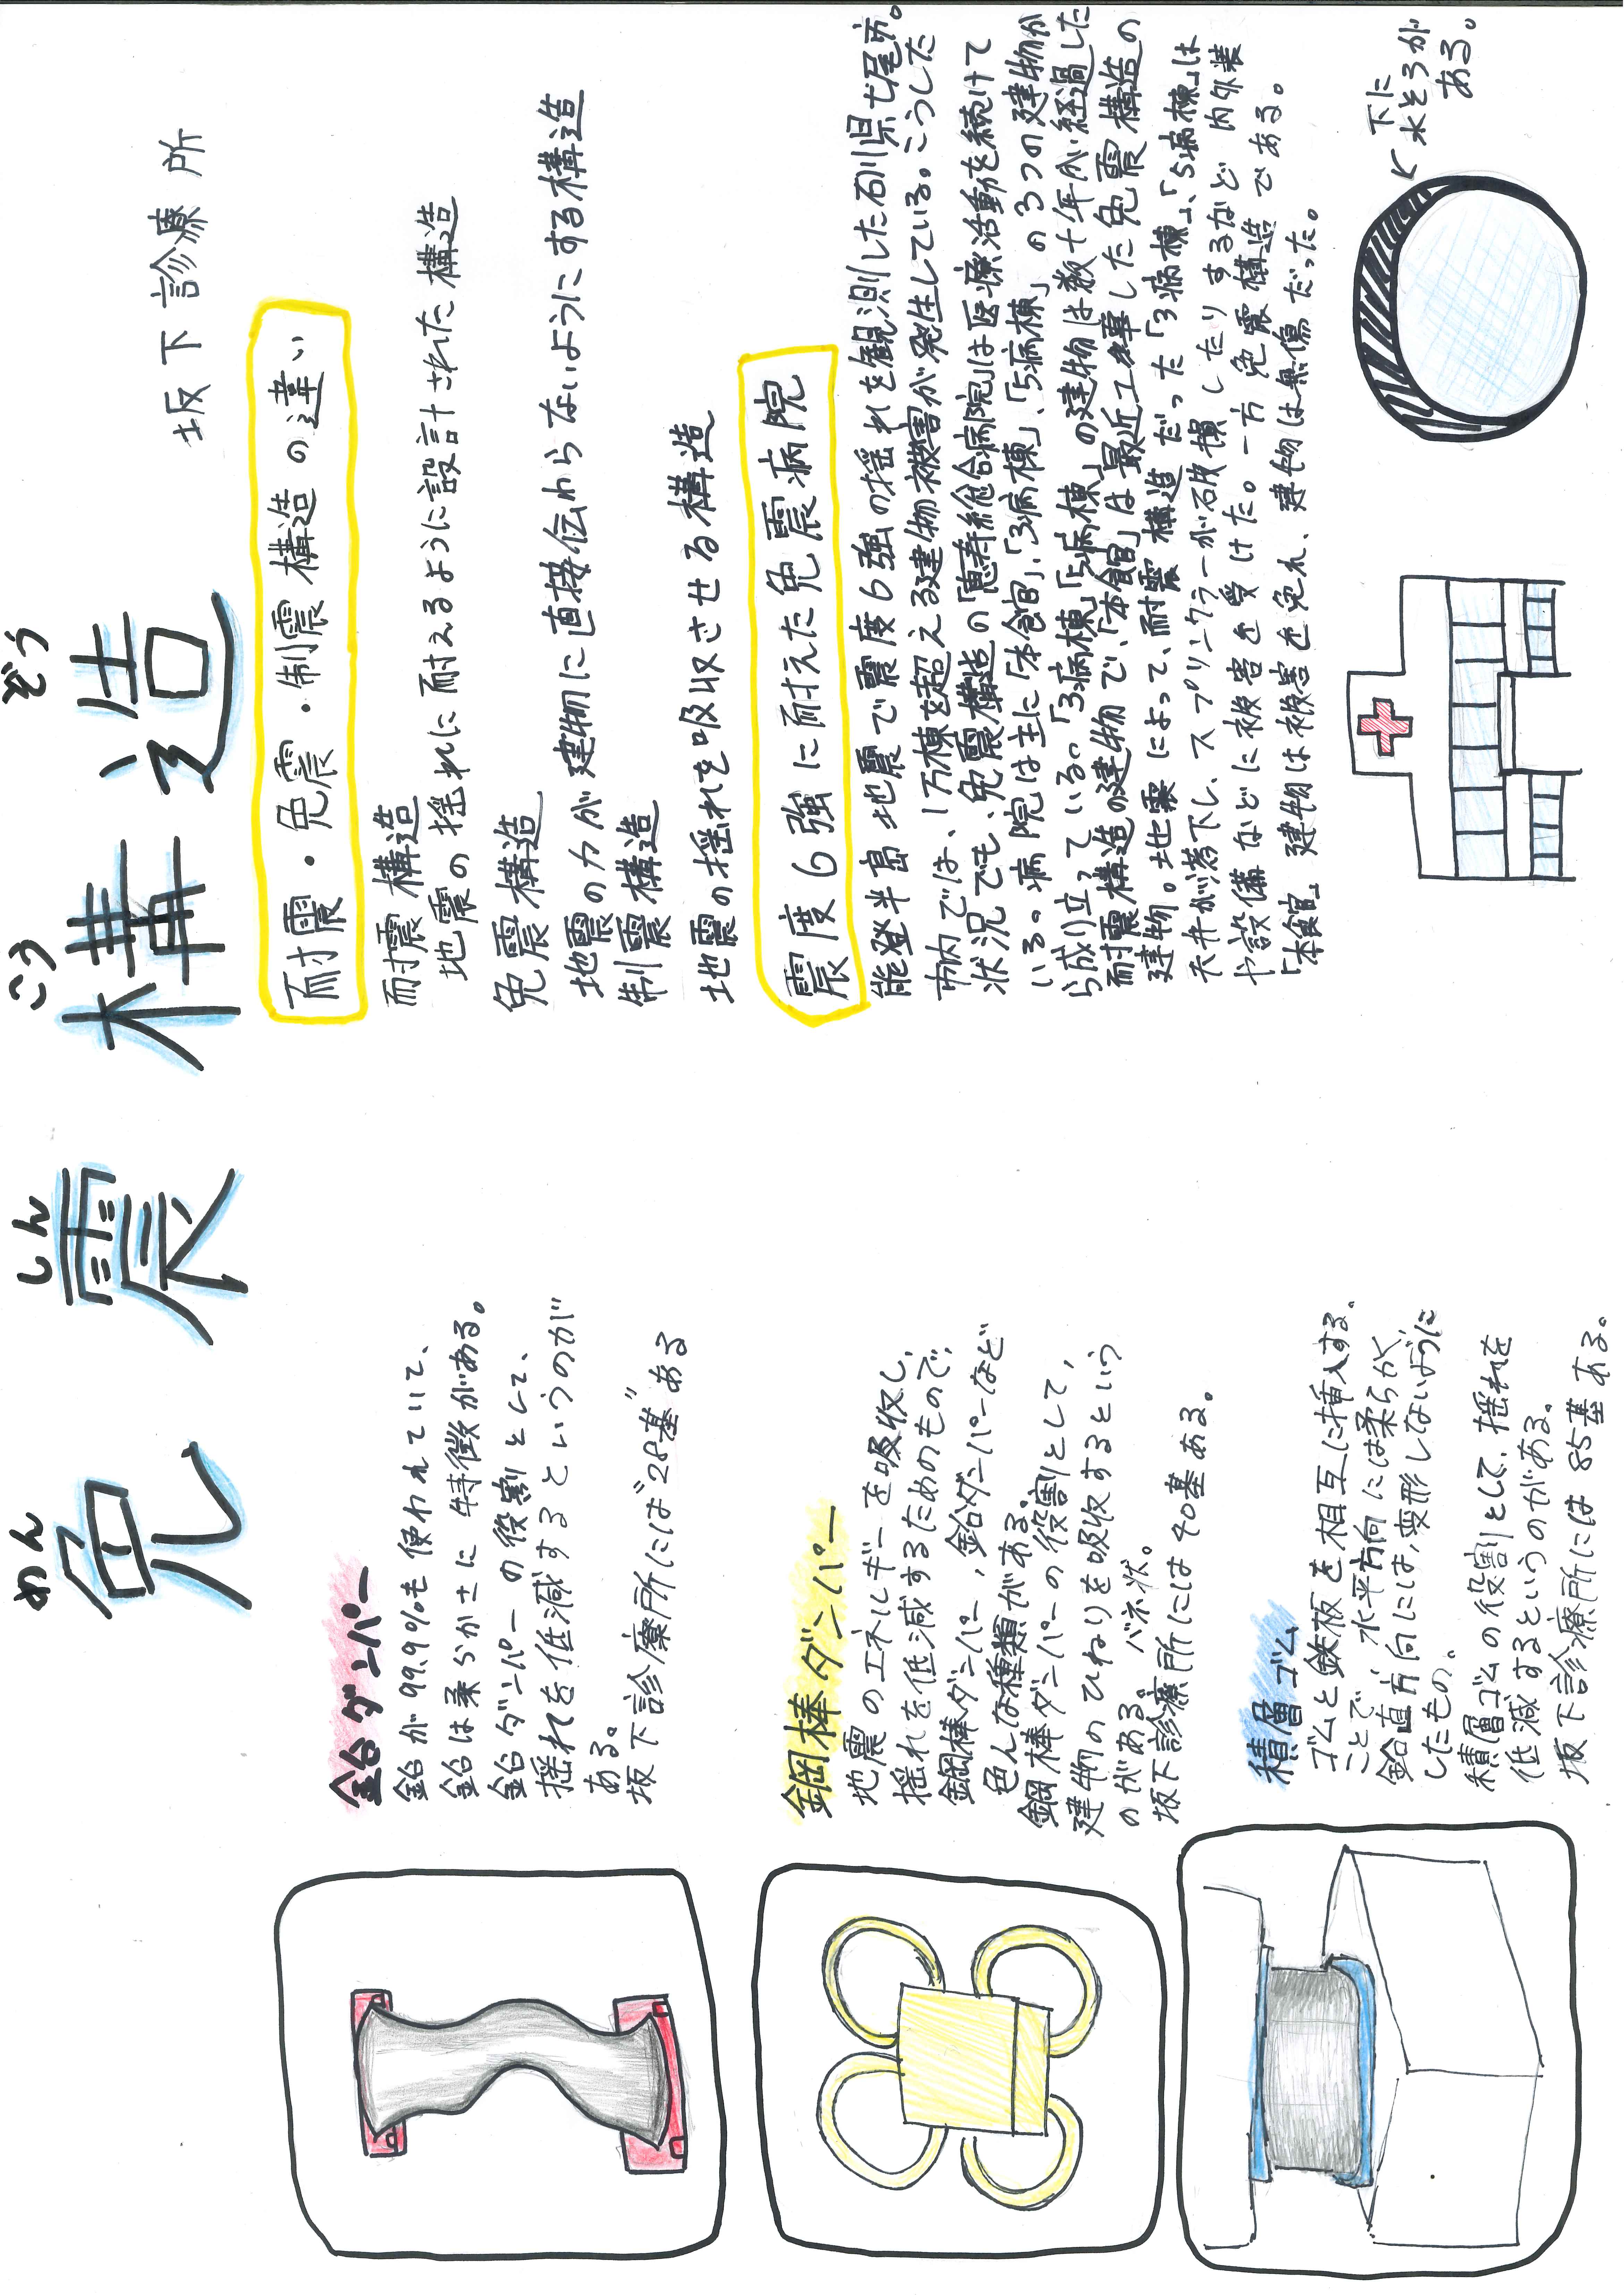 めん しん こう ぞう
免震構造
坂下診療所
鉛ダンパー
鉛が99.9%も使われていて、
鉛は柔らかさに特徴がある。
鉛ダンパーの役割として、
揺れを低減するというのが
ある。
坂下診療所には"28基"ある
鋼棒ダンパー
地震のエネルギーを吸収し、
揺れを低減するためのもので、
鋼棒ダンパー、鉛ダンパーなど
色んな種類がある。
鋼棒ダンパーの役割として、
建物のひねりを吸収するという
のがある。バネ状。
坂下診療所には40基ある。
積層ゴム
ゴムと鉄板を相互に挿入する
ことで、水平方向には柔らかく、
鉛直方向には、変形しないように
したもの。
積層ゴムの役割として、揺れを
低減するというのがある。
坂下診療所には85基ある。
耐震・免震・制震構造の違い
耐震構造
地震の揺れに耐えるように設計された構造
免震構造
地震の力が建物に直接伝わらないようにする構造
制震構造
地震の揺れを吸収させる構造
震度6強に耐えた免震病院
能登半島地震で震度6強の揺れを観測した石川県七尾市。
市内では、1万棟を超える建物被害が発生している。こうした
状況でも、免震構造の「恵寿総合病院」は医療活動を続けて
いる。病院は主に「本館」、「3病棟」、「5病棟」の3つの建物か
ら成り立っている。「3病棟」「5病棟」の建物は数十年が経過した
耐震構造の建物で、「本館」は最近工事した免震構造の
建物。地震によって、耐震構造だった「3病棟」、「5病棟」は
天井が落下し、スプリンクラーが破損したりするなど内外装
や設備などに被害を受けた。一方免震構造である。
「本館」建物は被害を免れ、建物は無傷だった。
下に
水ところが
ある。